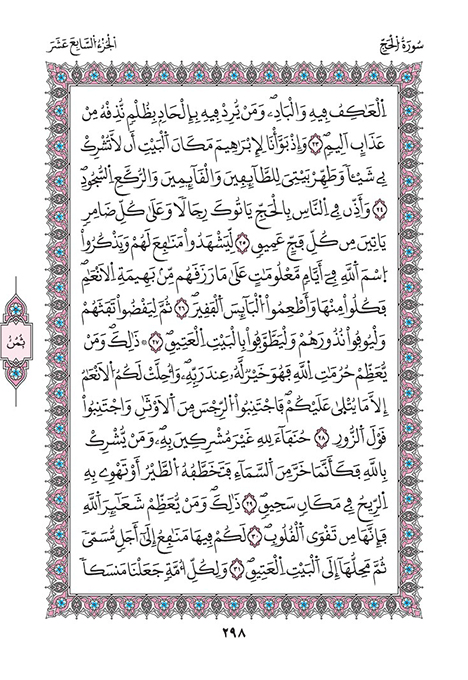 سُورَةُ الحَجِّ
الجُزْءُ السَّابِعَ عَشَرَ
اَلْعَـٰكِفُ فِيهِ وَالْبَادِۦ وَمَنْ يُّرِدْ فِيهِ بِإِلْحَادٍ بِظُلْمٍ نُّذِقْهُ مِنْ
عَذَابٍ اَلِيمٍ ٢٣ وَإِذْ بَوَّأْنَا لِإِبْرَٰهِيمَ مَكَانَ اَلْبَيْتِ أَن لَّا تُشْرِكْ
بِے شَيْـٔاً وَطَهِّرْ بَيْتِيَ لِلطَّآئِفِينَ وَالْقَآئِمِينَ وَالرُّكَّعِ السُّجُودِ
٢٤ وَأَذِّن فِے النَّاسِ بِالْحَجِّ يَاتُوكَ رِجَالًا وَعَلَىٰ كُلِّ ضَامِرٍ
يَاتِينَ مِن كُلِّ فَجٍّ عَمِيقٍ ٢٥ لِّيَشْهَدُواْ مَنَـٰفِعَ لَهُمْ وَيَذْكُرُواْ
اُسْمَ اَللَّهِ فِے أَيَّامٍ مَّعْلُومَـٰتٍ عَلَىٰ مَا رَزَقَهُم مِّنۢ بَهِيمَةِ اِلَانْعَـٰمِ
فَكُلُواْ مِنْهَا وَأَطْعِمُواْ اُلْبَآئِسَ اَلْفَقِيرَ ٢٦ ثُمَّ لِيَقْضُواْ تَفَثَهُمْ
وَلْيُوفُواْ نُذُورَهُمْ وَلْيَطَّوَّفُواْ بِالْبَيْتِ اِلْعَتِيقِ ٢٧ ۞ ذَٰلِكَ وَمَنْ
يُّعَظِّمْ حُرُمَـٰتِ اِللَّهِ فَهُوَ خَيْرٌ لَّهُۥ عِندَ رَبِّهِۦ وَأُحِلَّتْ لَكُمُ اُلَانْعَـٰمُ
إِلَّا مَا يُتْلَىٰ عَلَيْكُمْ فَاجْتَنِبُواْ اُلرِّجْسَ مِنَ اَلَاوْثَـٰنِ وَاجْتَنِبُواْ
قَوْلَ اَلزُّورِ ٢٨ حُنَفَآءَ لِلهِ غَيْرَ مُشْرِكِينَ بِهِۦ وَمَنْ يُّشْرِكْ
بِاللَّهِ فَكَأَنَّمَا خَرَّ مِنَ اَلسَّمَآءِ فَتَخَطَّفُهُ اُلطَّيْرُ أَوْ تَهْوِے بِهِ
اِلرِّيحُ فِے مَكَانٍ سَحِيقٍ ٢٩ ذَٰلِكَ وَمَنْ يُّعَظِّمْ شَعَـٰٓئِرَ اَللَّهِ
فَإِنَّهَا مِن تَقْوَى اَلْقُلُوبِ ٣٠ لَكُمْ فِيهَا مَنَـٰفِعُ إِلَىٰٓ أَجَلٍ مُّسَمّىً
ثُمَّ مَحِلُّهَآ إِلَى اَلْبَيْتِ اِلْعَتِيقِ ٣١ وَلِكُلِّ أُمَّةٍ جَعَلْنَا مَنسَكاً
ثُمُنْ
٢٩٨